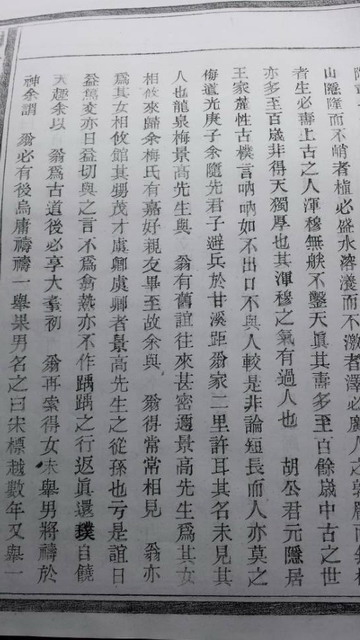 山隱隆而峭者植必盛水溶瀠而不激者
者生必壽上古之人渾穆無朕不鑿天眞其壽多至百餘歲中古之世
亦多至百歲非得天獨厚也其渾穆之氣有過人也 胡公君元隱居
王家蓭性古樸言吶吶如不出口不與人較是非論短長而人亦莫之
侮道光庚子余隨先君子避兵於甘溪距翁家二里許耳其名未見其
人也龍泉梅景高先生與 翁有舊誼往來甚密邇景高先生爲其女
相攸來歸余梅氏有嘉好親友畢至故余與 翁得常常相見 翁亦
爲其女相攸館其甥茂才虞卿虞卿者景高先生之從孫也于是誼日
益篤交亦日益切與之言不爲翕熱亦不作踽踽之行返眞還璞自饒
天趣余以 翁爲古道後必享大耋初 翁再索得女未舉男將禱於
神余謂 翁必有後烏庸禱禱一舉果男名之曰宋標越數年又舉一